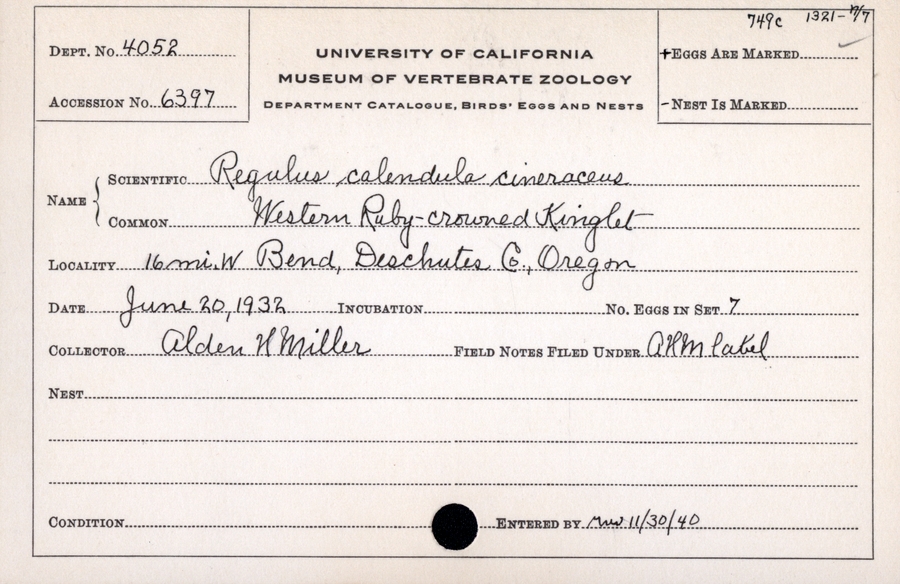 749c 1321-7/7
DEPT. No. 4052
UNIVERSITY OF CALIFORNIA
+EGGS ARE MARKED
MUSEUM OF VERTEBRATE ZOOLOGY
ACCESSION No. 6397
DEPARTMENT CATALOGUE, BIRDS' EGGS AND NESTS
-NEST IS MARKED
NAME
SCIENTIFIC Regulus calendula cineraceus
COMMON Western Ruby-crowned Kinglet
LOCALITY 16 mi. W Bend, Deschutes Co., Oregon
DATE June 20, 1932 INCUBATION No. EGGS IN SET 7
COLLECTOR Alden H Miller FIELD NOTES FILED UNDER AHM label
NEST
CONDITION ENTERED BY 11/30/40